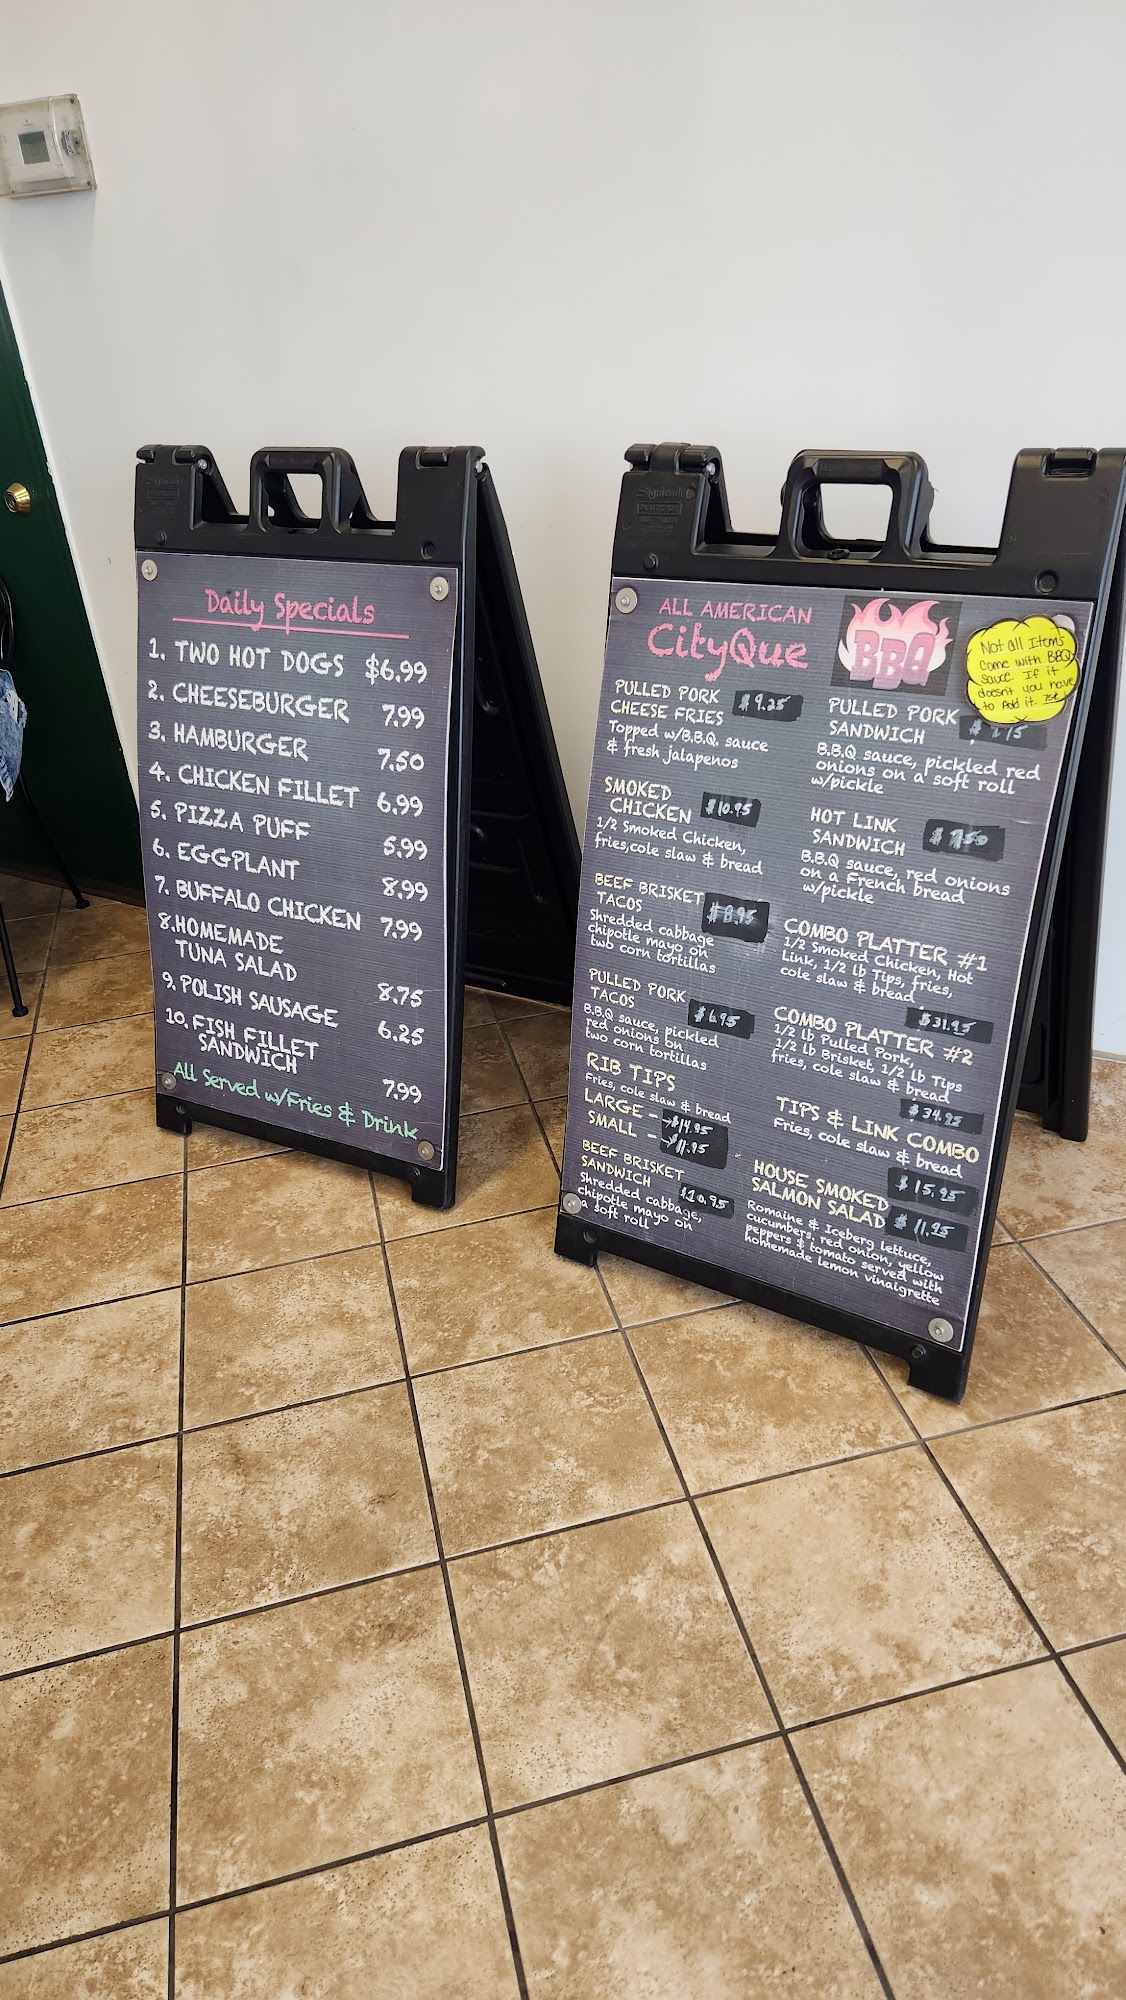 Daily Specials
1. TWO HOT DOGS $6.99
2. CHEESEBURGER 7.99
3. HAMBURGER 7.50
4. CHICKEN FILLET 6.99
5. PIZZA PUFF 5.99
6. EGGPLANT 8.99
7. BUFFALO CHICKEN 7.99
8. HOMEMADE
TUNA SALAD 8.75
9. POLISH SAUSAGE 6.25
10. FISH FILLET
SANDWICH 7.99
All Served w/Fries & Drink
Signicade
ALL AMERICAN
CityQue
BBQ
Not all Items
Come with BBQ
Sauce. If it
doesn't you have
to Add it.
PULLED PORK
CHEESE FRIES $9.25
Topped w/B.B.Q. sauce
& fresh jalapenos
SMOKED
CHICKEN $10.95
1/2 Smoked Chicken,
fries,cole slaw & bread
BEEF BRISKET
TACOS $8.95
Shredded cabbage
chipotle mayo on
two corn tortillas
PULLED PORK
TACOS $6.95
B.B.Q sauce, pickled
red onions on
two corn tortillas
RIB TIPS
Fries, cole slaw & bread
LARGE - $14.95
SMALL - $11.95
BEEF BRISKET
SANDWICH $10.95
Shredded cabbage,
chipotle mayo on
a soft roll
PULLED PORK
SANDWICH
B.B.Q sauce, pickled red
onions on a soft roll
w/pickle
HOT LINK
SANDWICH $7.50
B.B.Q sauce, red onions
on a French bread
w/pickle
COMBO PLATTER #1
1/2 Smoked Chicken, Hot
Link, 1/2 lb Tips, fries,
cole slaw & bread
$31.95
COMBO PLATTER #2
1/2 lb Pulled Pork,
1/2 lb Brisket, 1/2 lb Tips
fries, cole slaw & bread
$34.95
TIPS & LINK COMBO
Fries, cole slaw & bread
$15.95
HOUSE SMOKED
SALMON SALAD $11.95
Romaine & Iceberg lettuce,
cucumbers, red onion, yellow
peppers & tomato served with
homemade lemon vinaigrette